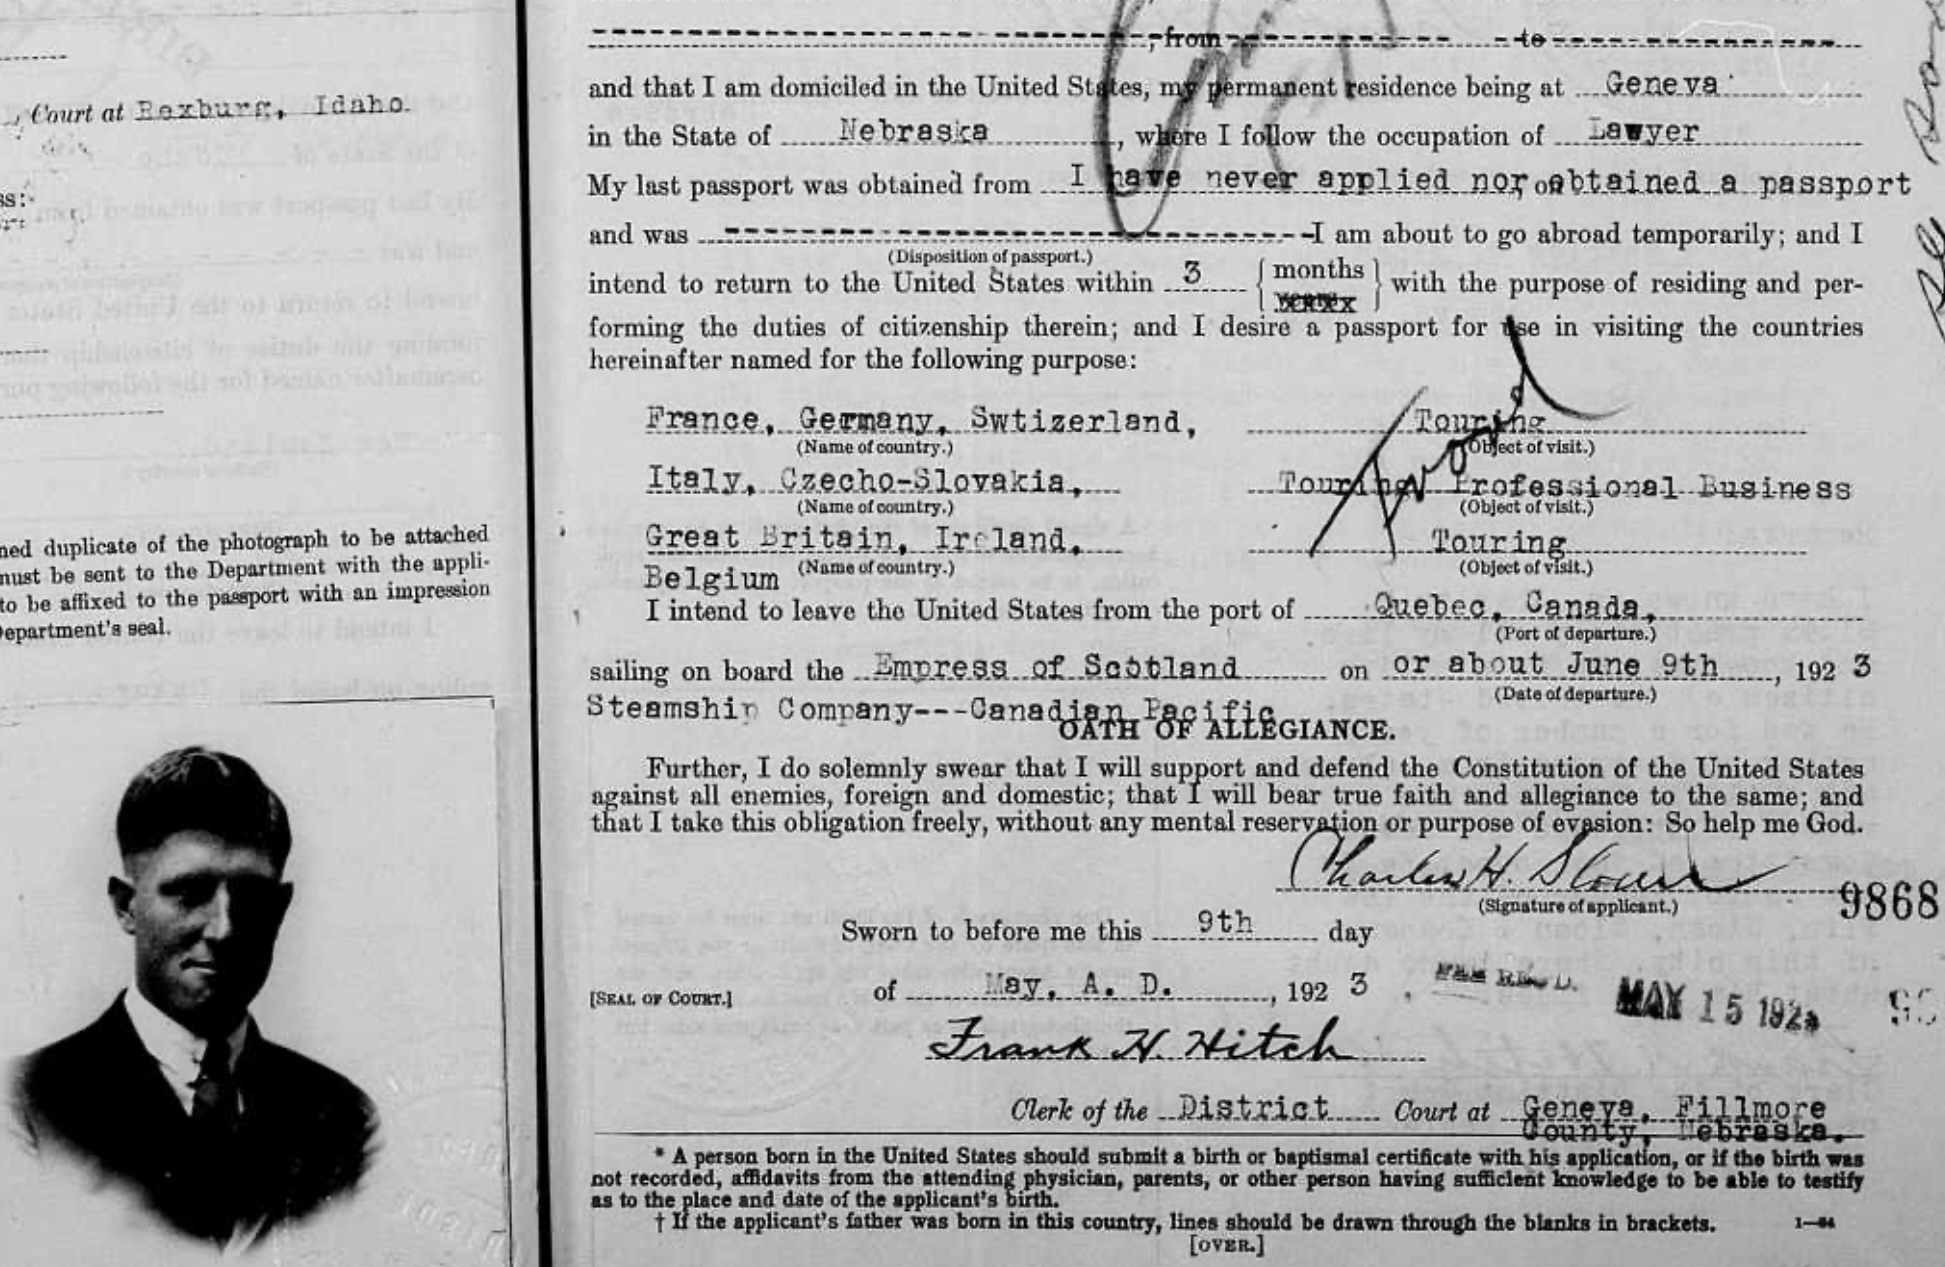 Court at Rexburg, Idaho.
ned duplicate of the photograph to be attached
must be sent to the Department with the appli-
to be affixed to the passport with an impression
epartment's seal.
, from to
and that I am domiciled in the United States, my permanent residence being at Geneva
in the State of Nebraska, where I follow the occupation of Lawyer
My last passport was obtained from I have never applied nor obtained a passport
and was I am about to go abroad temporarily; and I
(Disposition of passport.)
intend to return to the United States within 3 { months } with the purpose of residing and per-
forming the duties of citizenship therein; and I desire a passport for use in visiting the countries
hereinafter named for the following purpose:
France, Germany, Swtizerland, Touring
(Name of country.) (Object of visit.)
Italy, Czecho-Slovakia, Touring Professional Business
(Name of country.) (Object of visit.)
Great Britain, Ireland, Touring
Belgium (Name of country.) (Object of visit.)
I intend to leave the United States from the port of Quebec, Canada,
(Port of departure.)
sailing on board the Empress of Scotland on or about June 9th, 1923
(Date of departure.)
Steamship Company---Canadian Pacific
OATH OF ALLEGIANCE.
Further, I do solemnly swear that I will support and defend the Constitution of the United States
against all enemies, foreign and domestic; that I will bear true faith and allegiance to the same; and
that I take this obligation freely, without any mental reservation or purpose of evasion: So help me God.
Charles H. Sloan
(Signature of applicant.)
9868
Sworn to before me this 9th day
[SEAL OF COURT.] of May, A. D., 192 3
MAY 15 192
Frank H. Hitch
Clerk of the District Court at Geneva, Fillmore
County, Nebraska.
* A person born in the United States should submit a birth or baptismal certificate with his application, or if the birth was
not recorded, affidavits from the attending physician, parents, or other person having sufficient knowledge to be able to testify
as to the place and date of the applicant's birth.
† If the applicant's father was born in this country, lines should be drawn through the blanks in brackets. 1—84
[OVER.]